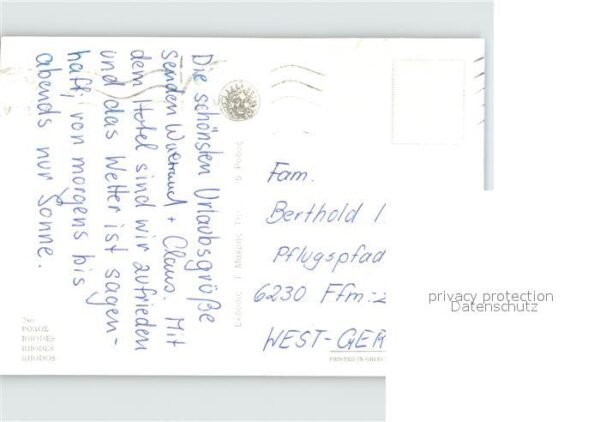 Die schönsten Urlaubsgrüße
senden Waltraud + Claus. Mit
dem Hotel sind wir zufrieden
und das Wetter ist sagen-
haft, von morgens bis
abends nur Sonne.
Fam.
Berthold
Pflugspfad
6230 Ffm.-
WEST-GER
PRINTED IN GREEC
ΡΟΔΟΣ
RHODES
RHODES
RHODOS
privacy protection
Datenschutz